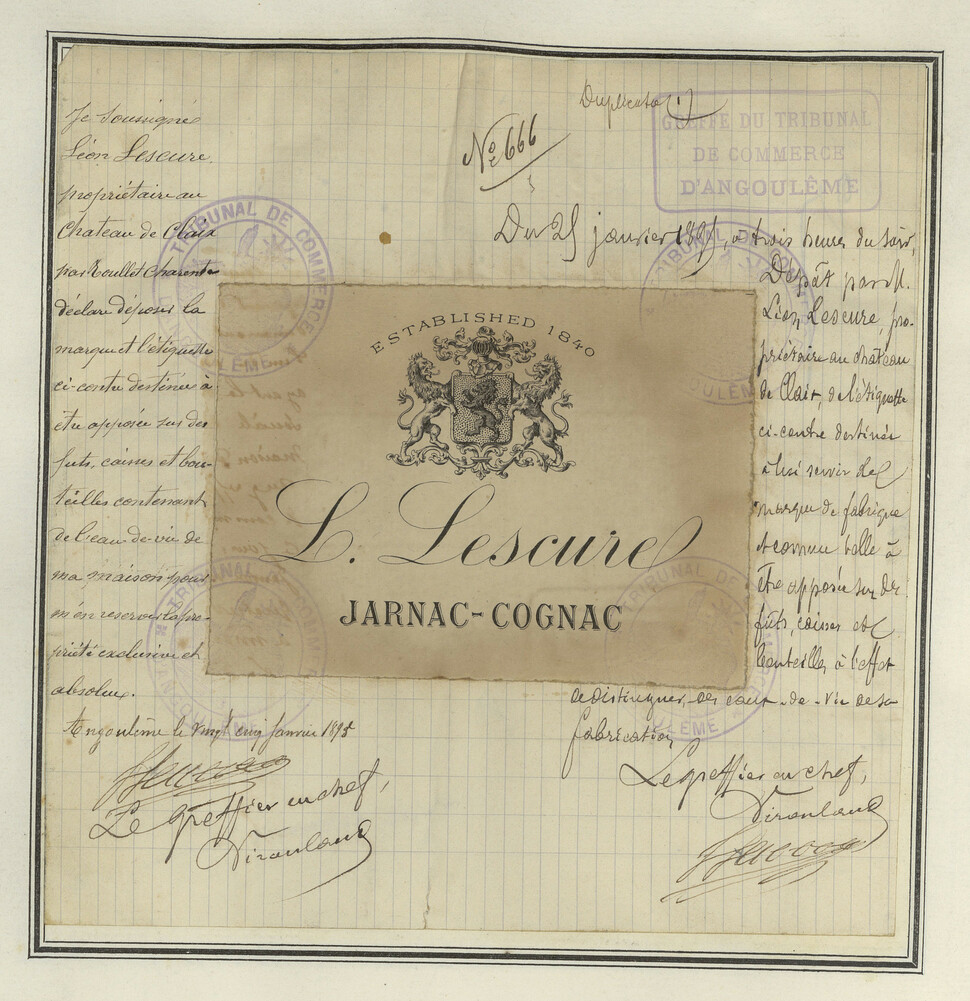 Duplicata
No 666
GREFFE DU TRIBUNAL
DE COMMERCE
D'ANGOULÊME
Je soussigné
Léon Lescure
propriétaire au
Chateau de Claix
par Roullet Charente
déclare déposer la
marque et l'étiquette
ci-contre destinée à
être apposée sur des
futs, caisses et bou-
teilles contenant
de l'eau-de-vie de
ma maison pour
m'en reserver la pro-
priété exclusive et
absolue.
Angoulême le vingt cinq Janvier 1895
Le Greffier en chef,
ESTABLISHED 1840
L. Lescure
JARNAC-COGNAC
Du 25 janvier 1895, à trois heures du soir,
Dépôt par M.
Léon Lescure, pro-
priétaire au château
de Claix, de l'étiquette
ci-contre destinée
à lui servir de
marque de fabrique
et comme telle à
être apposée sur des
fûts, caisses et
bouteilles à l'effet
de distinguer les eaux-de-vie de sa
fabrication
Le greffier en chef,
TRIBUNAL DE COMMERCE